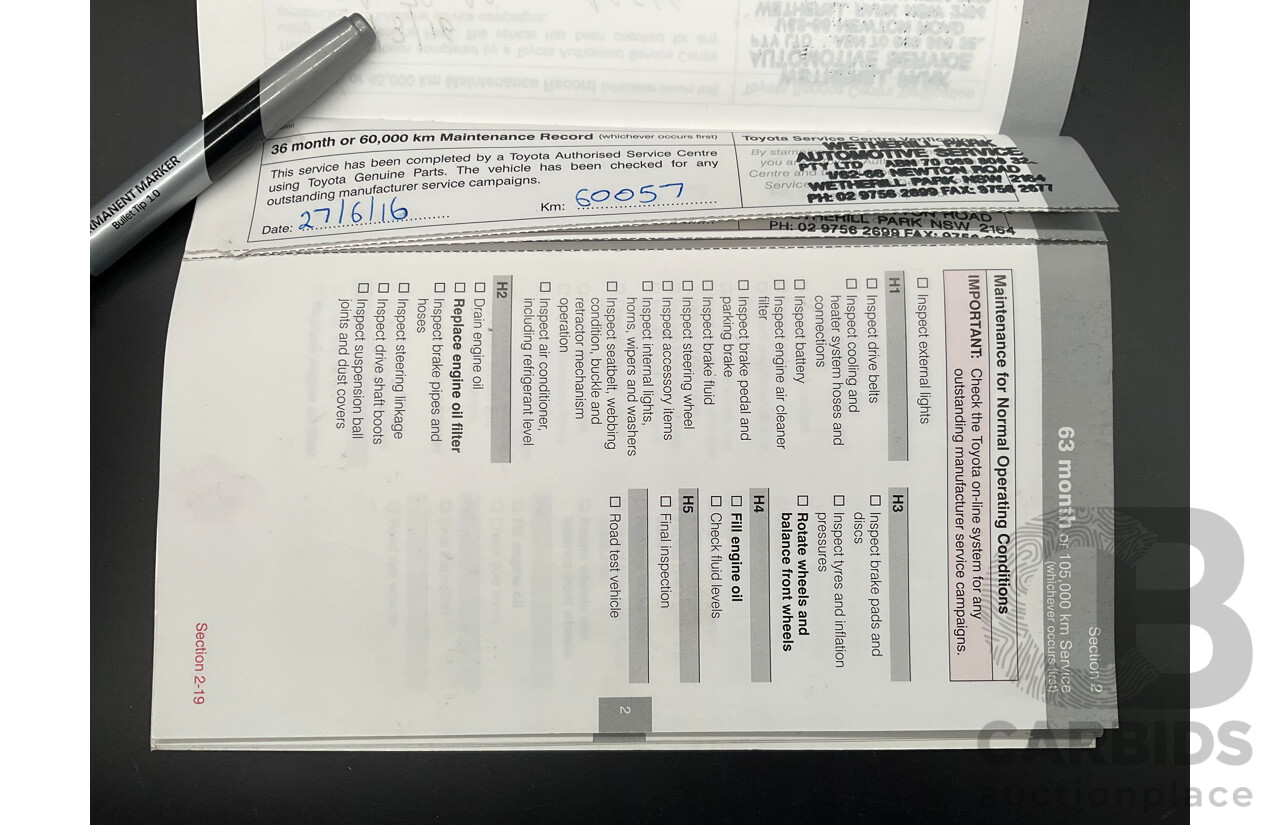 PERMANENT MARKER
Bullet Tip 1.0
36 month or 60,000 km Maintenance Record (whichever occurs first)
This service has been completed by a Toyota Authorised Service Centre
using Toyota Genuine Parts. The vehicle has been checked for any
outstanding manufacturer service campaigns.
Date: 27/6/16
Km: 60057
Toyota Service Centre Verification
By stamp
you
Centre and
Service
WETHERILL PARK
AUTOMOTIVE SERVICE
PTY LTD
NEWTON ROAD
WETHERILL PARK NSW 2164
PH: 02 9756 2699 FAX: 9756 2677
ROAD
PARK NSW 2164
PH: 02 9756 2699 FAX:
Section 2
63 month or 105,000 km Service
(whichever occurs first)
Maintenance for Normal Operating Conditions
IMPORTANT: Check the Toyota on-line system for any
outstanding manufacturer service campaigns.
☐ Inspect external lights
H1
☐ Inspect drive belts
☐ Inspect cooling and
heater system hoses and
connections
☐ Inspect battery
☐ Inspect engine air cleaner
filter
☐ Inspect brake pedal and
parking brake
☐ Inspect brake fluid
☐ Inspect steering wheel
☐ Inspect accessory items
☐ Inspect internal lights,
horns, wipers and washers
☐ Inspect seatbelt, webbing
condition, buckle and
retractor mechanism
operation
☐ Inspect air conditioner,
including refrigerant level
H2
☐ Drain engine oil
☐ Replace engine oil filter
☐ Inspect brake pipes and
hoses
☐ Inspect steering linkage
☐ Inspect drive shaft boots
☐ Inspect suspension ball
joints and dust covers
H3
☐ Inspect brake pads and
discs
☐ Inspect tyres and inflation
pressures
☐ Rotate wheels and
balance front wheels
H4
☐ Fill engine oil
☐ Check fluid levels
H5
☐ Final inspection
☐ Road test vehicle
2
Section 2-19
CARBIDS
auctionplace